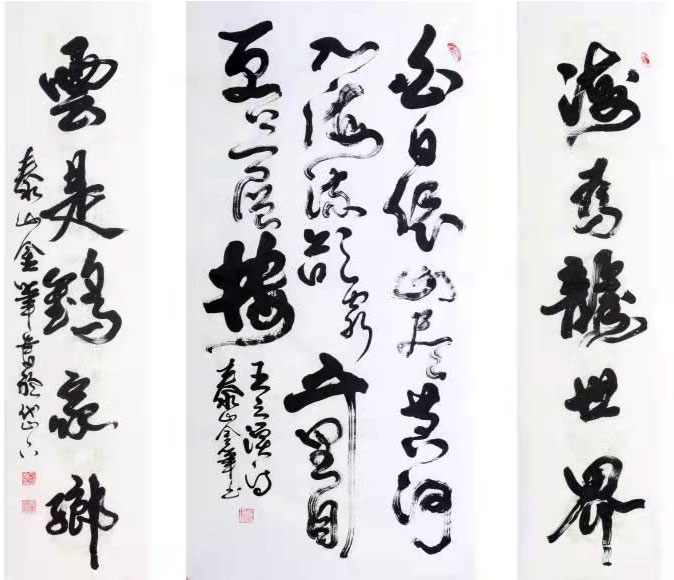 海為龍世界
白日依山盡黃河
入海流欲窮千里目
更上一層樓
王之渙詩
泰山金筆书
雲是鶴家鄉
泰山金筆書於岱下